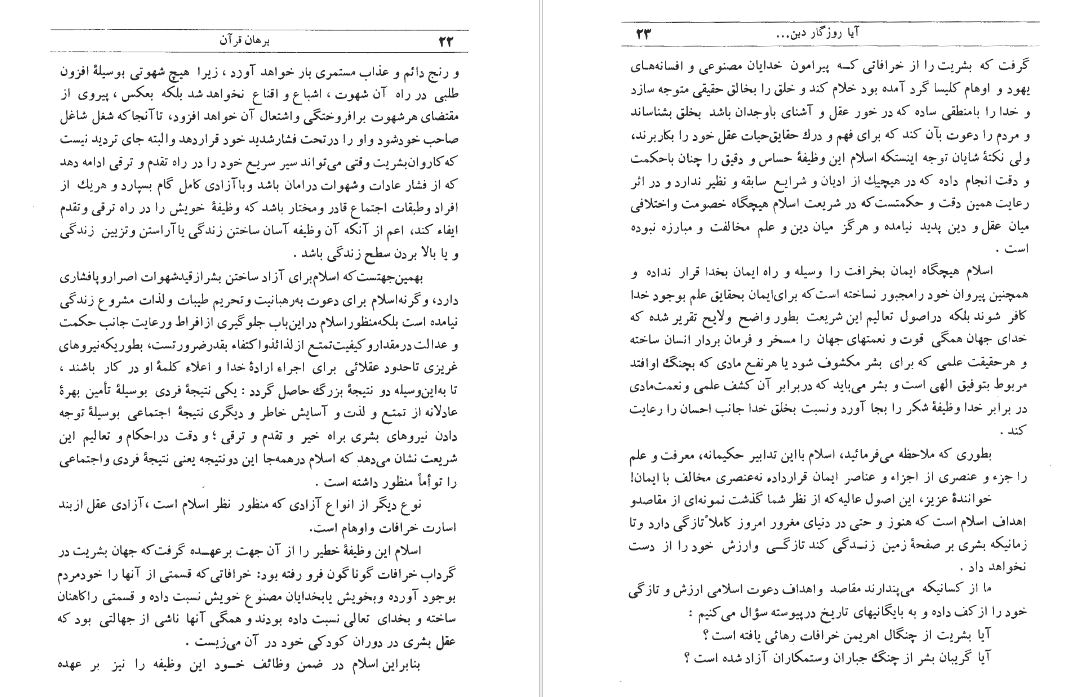 ۲۲ برهان قرآن
و رنج دائم و عذاب مستمری بار خواهد آورد ، زیرا هیچ شهوتی بوسیلهٔ افزون
طلبی در راه آن شهوت ، اشباع و اقناع نخواهد شد بلکه بعکس ، پیروی از
مقتضای هرشهوت برافروختگی واشتعال آن خواهد افزود، تا آنجا که شغل شاغل
صاحب خودشود واو را درتحت فشارشدید خود قراردهد والبته جای تردید نیست
که کاروان بشریت وقتی می‌تواند سیر سریع خود را در راه تقدم و ترقی ادامه دهد
که از فشار عادات وشهوات درامان باشد وبا آزادی کامل گام بسپارد و هریك از
افراد وطبقات اجتماع قادر ومختار باشد که وظیفهٔ خویش را در راه ترقی وتقدم
ایفاء کند، اعم از آنکه آن وظیفه آسان ساختن زندگی یا آراستن وتزیین زندگی
و یا بالا بردن سطح زندگی باشد .
بهمین جهتست که اسلام برای آزاد ساختن بشر از قید شهوات اصرار وپافشاری
دارد، وگرنه اسلام برای دعوت به رهبانیت وتحریم طیبات ولذات مشروع زندگی
نیامده است بلکه منظور اسلام دراین باب جلوگیری از افراط ورعایت جانب حکمت
و عدالت درمقدار وکیفیت تمتع از لذائذ واکتفاء بقدرضرورتست، بطوریکه نیروهای
غریزی تاحدود عقلائی برای اجراء ارادهٔ خدا و اعلاء کلمهٔ او در کار باشند ،
تا به این وسیله دو نتیجهٔ بزرگ حاصل گردد : یکی نتیجهٔ فردی بوسیلهٔ تأمین بهرهٔ
عادلانه از تمتع و لذت و آسایش خاطر و دیگری نتیجهٔ اجتماعی بوسیلهٔ توجه
دادن نیروهای بشری براه خیر و تقدم و ترقی ؛ و دقت دراحکام و تعالیم این
شریعت نشان می‌دهد که اسلام درهمه‌جا این دونتیجه یعنی نتیجهٔ فردی واجتماعی
را توأماً منظور داشته است .
نوع دیگر از انواع آزادی که منظور نظر اسلام است ، آزادی عقل ازبند
اسارت خرافات واوهام است.
اسلام این وظیفهٔ خطیر را از آن جهت برعهــده گرفت که جهان بشریت در
گرداب خرافات گوناگون فرو رفته بود: خرافاتی که قسمتی از آنها را خودمردم
بوجود آورده وبخویش یابخدایان مصنوع خویش نسبت داده و قسمتی راکاهنان
ساخته و بخدای تعالی نسبت داده بودند و همگی آنها ناشی از جهالتی بود که
عقل بشری در دوران کودکی خود در آن می‌زیست .
بنابراین اسلام در ضمن وظائف خــود این وظیفه را نیز بر عهده
آیا روزگار دین... ۲۳
گرفت که بشریت را از خرافاتی کــه پیرامون خدایان مصنوعی و افسانه‌های
یهود و اوهام کلیسا گرد آمده بود خلام کند و خلق را بخالق حقیقی متوجه سازد
و خدا را بامنطقی ساده که در خور عقل و آشنای باوجدان باشد بخلق بشناساند
و مردم را دعوت بآن کند که برای فهم و درك حقایق حیات عقل خود را بکاربرند،
ولی نکتهٔ شایان توجه اینستکه اسلام این وظیفهٔ حساس و دقیق را چنان باحکمت
و دقت انجام داده که در هیچیك از ادیان و شرایع سابقه و نظیر ندارد و در اثر
رعایت همین دقت و حکمتست که در شریعت اسلام هیچگاه خصومت واختلافی
میان عقل و دین پدید نیامده و هرگز میان دین و علم مخالفت و مبارزه نبوده
است .
اسلام هیچگاه ایمان بخرافت را وسیله و راه ایمان بخدا قرار نداده و
همچنین پیروان خود را مجبور نساخته است که برای ایمان بحقایق علم بوجود خدا
کافر شوند بلکه دراصول تعالیم این شریعت بطور واضح ولایح تقریر شده که
خدای جهان همگی قوت و نعمتهای جهان را مسخر و فرمان بردار انسان ساخته
و هرحقیقت علمی که برای بشر مکشوف شود یا هرنفع مادی که بچنگ او افتد
مربوط بتوفیق الهی است و بشر می‌باید که دربرابر آن کشف علمی ونعمت مادی
در برابر خدا وظیفهٔ شکر را بجا آورد ونسبت بخلق خدا جانب احسان را رعایت
کند .
بطوری که ملاحظه می‌فرمائید، اسلام بااین تدابیر حکیمانه، معرفت و علم
را جزء و عنصری از اجزاء و عناصر ایمان قرارداده نه‌عنصری مخالف با ایمان!
خوانندهٔ عزیز، این اصول عالیه که از نظر شما گذشت نمونه‌ای از مقاصدو
اهداف اسلام است که هنوز و حتی در دنیای مغرور امروز کاملاً تازگی دارد وتا
زمانیکه بشری بر صفحهٔ زمین زنــدگی کند تازگــی وارزش خود را از دست
نخواهد داد .
ما از کسانیکه می‌پندارند مقاصد واهداف دعوت اسلامی ارزش و تازگی
خود را از کف داده و به بایگانیهای تاریخ درپیوسته سؤال می‌کنیم :
آیا بشریت از چنگال اهریمن خرافات رهائی یافته است ؟
آیا گریبان بشر از چنگ جباران وستمکاران آزاد شده است ؟